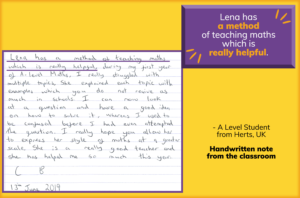 Lena has a method of teaching maths
which is really helpful, during my first year
of A-level Maths, I really struggled with
multiple topics. She explained each topic with
examples which you do not receive as
much in schools. I can now look
at a question and have a good idea
on how to solve it, whereas I used to
be confused before I had even attempted
the question. I really hope you allow her
to express her style of maths at a
scale. She is a really good teacher and
she has helped me so much this year.
13th June 2019
Lena has
a method
of teaching maths
which is
really helpful.
- A Level Student
from Herts, UK
Handwritten note
from the classroom